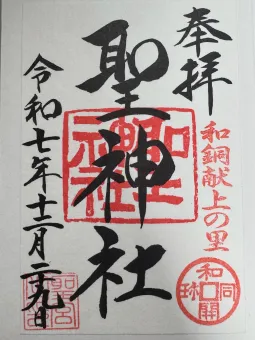 奉拝
和銅献上の里
聖神社
令和七年十二月二十九日
和同開珎